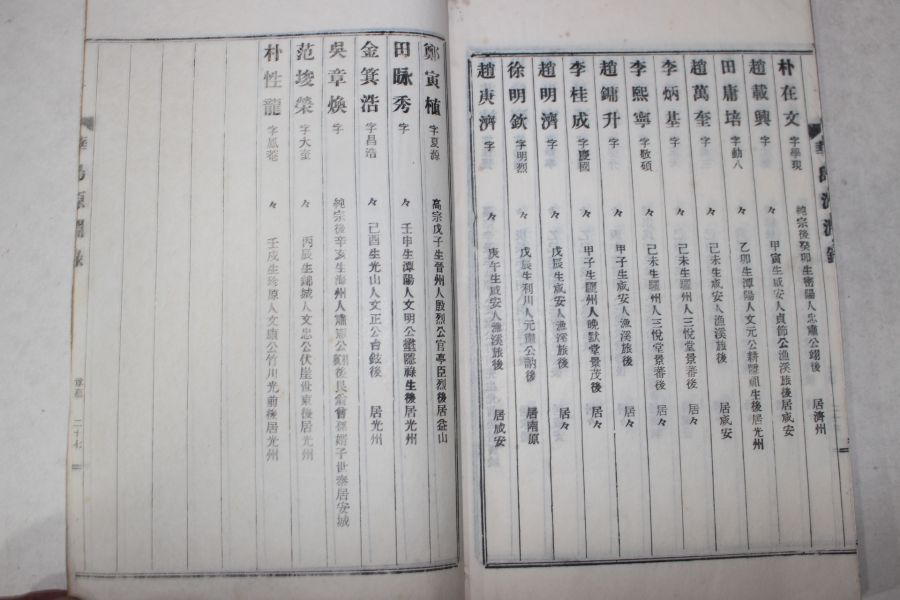 朴在文 字學現 純宗後癸卯生密陽人忠肅公翊後 居濟州
趙載興 字 々 甲寅生咸安人貞節公漁溪旅後居咸安
田庸培 字勳八 々 乙卯生潭陽人文元公耕隱祖生後居光州
趙萬奎 字 々 己未生咸安人漁溪旅後 居咸安
李炳基 字 々 己未生羅州人三悅堂景蕃後 居々
李熙寧 字敬碩 々 己未生羅州人三悅堂景蕃後 居々
趙鏞升 字 々 甲子生咸安人漁溪旅後 居々
李桂成 字慶國 々 甲子生羅州人晩默堂景茂後 居々
趙明濟 字 々 戊辰生咸安人漁溪旅後 居々
徐明欽 字明烈 々 戊辰生利川人元肅公訥後 居南原
趙庚濟 字 々 庚午生咸安人漁溪旅後 居咸安
鄭寅植 字夏源 高宗戊子生晉州人殷烈公官亭臣烈後居益山
田昹秀 字 々 壬申生潭陽人文明公 隱祿生後居光州
金箕浩 字昌浩 々 己酉生光山人文正公台鉉後 居光州
吳章煥 字 純宗後辛亥生海州人肅 公 後 子世泰居安城
范埈榮 字大奎 々 丙辰生錦城人文忠公伏崖世東後居光州
朴性龍 字鳳菴 々 壬戌生珍原人文康公竹川光前後居光州
二十七